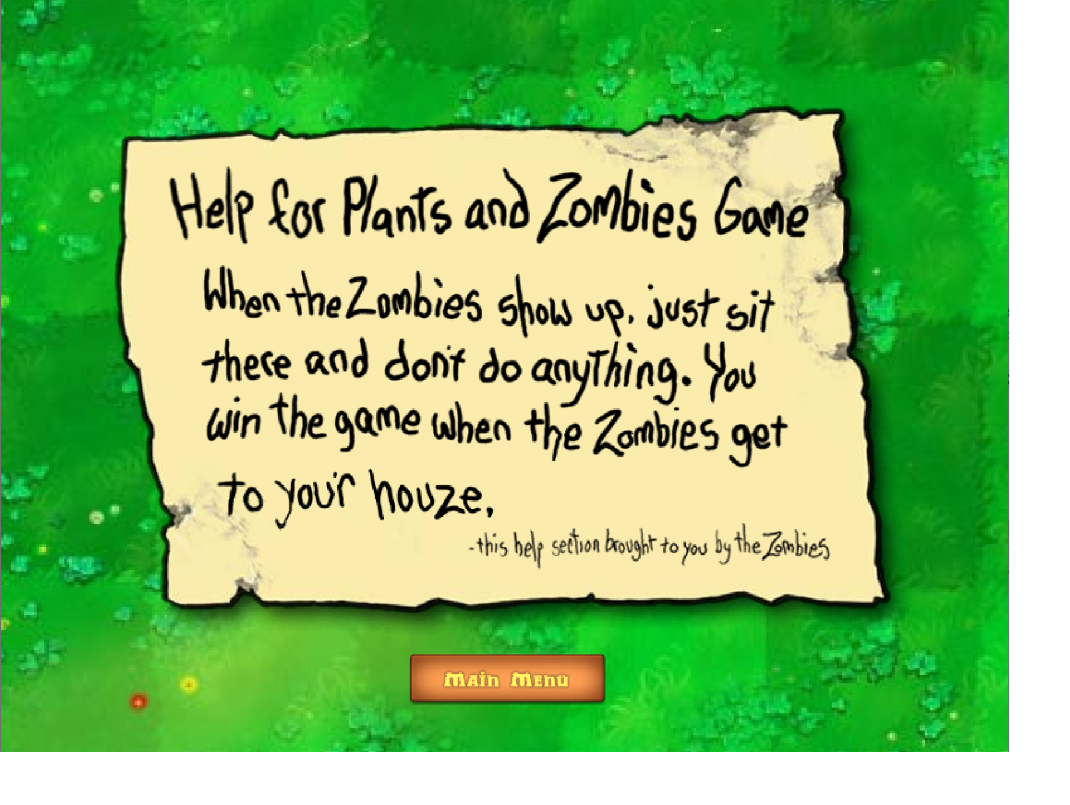 Help for Plants and Zombies Game
When the Zombies show up, just sit
there and don't do anything. You
win the game when the Zombies get
to your houze.
-this help section brought to you by the Zombies
Main Menu